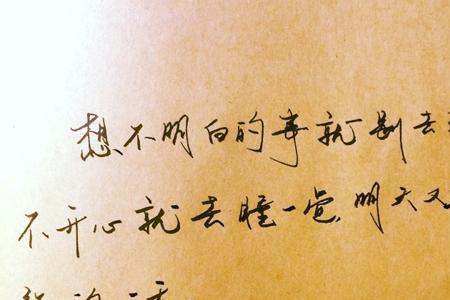 想不明白的事就别去
不开心就去睡一觉,明天又
新的一天